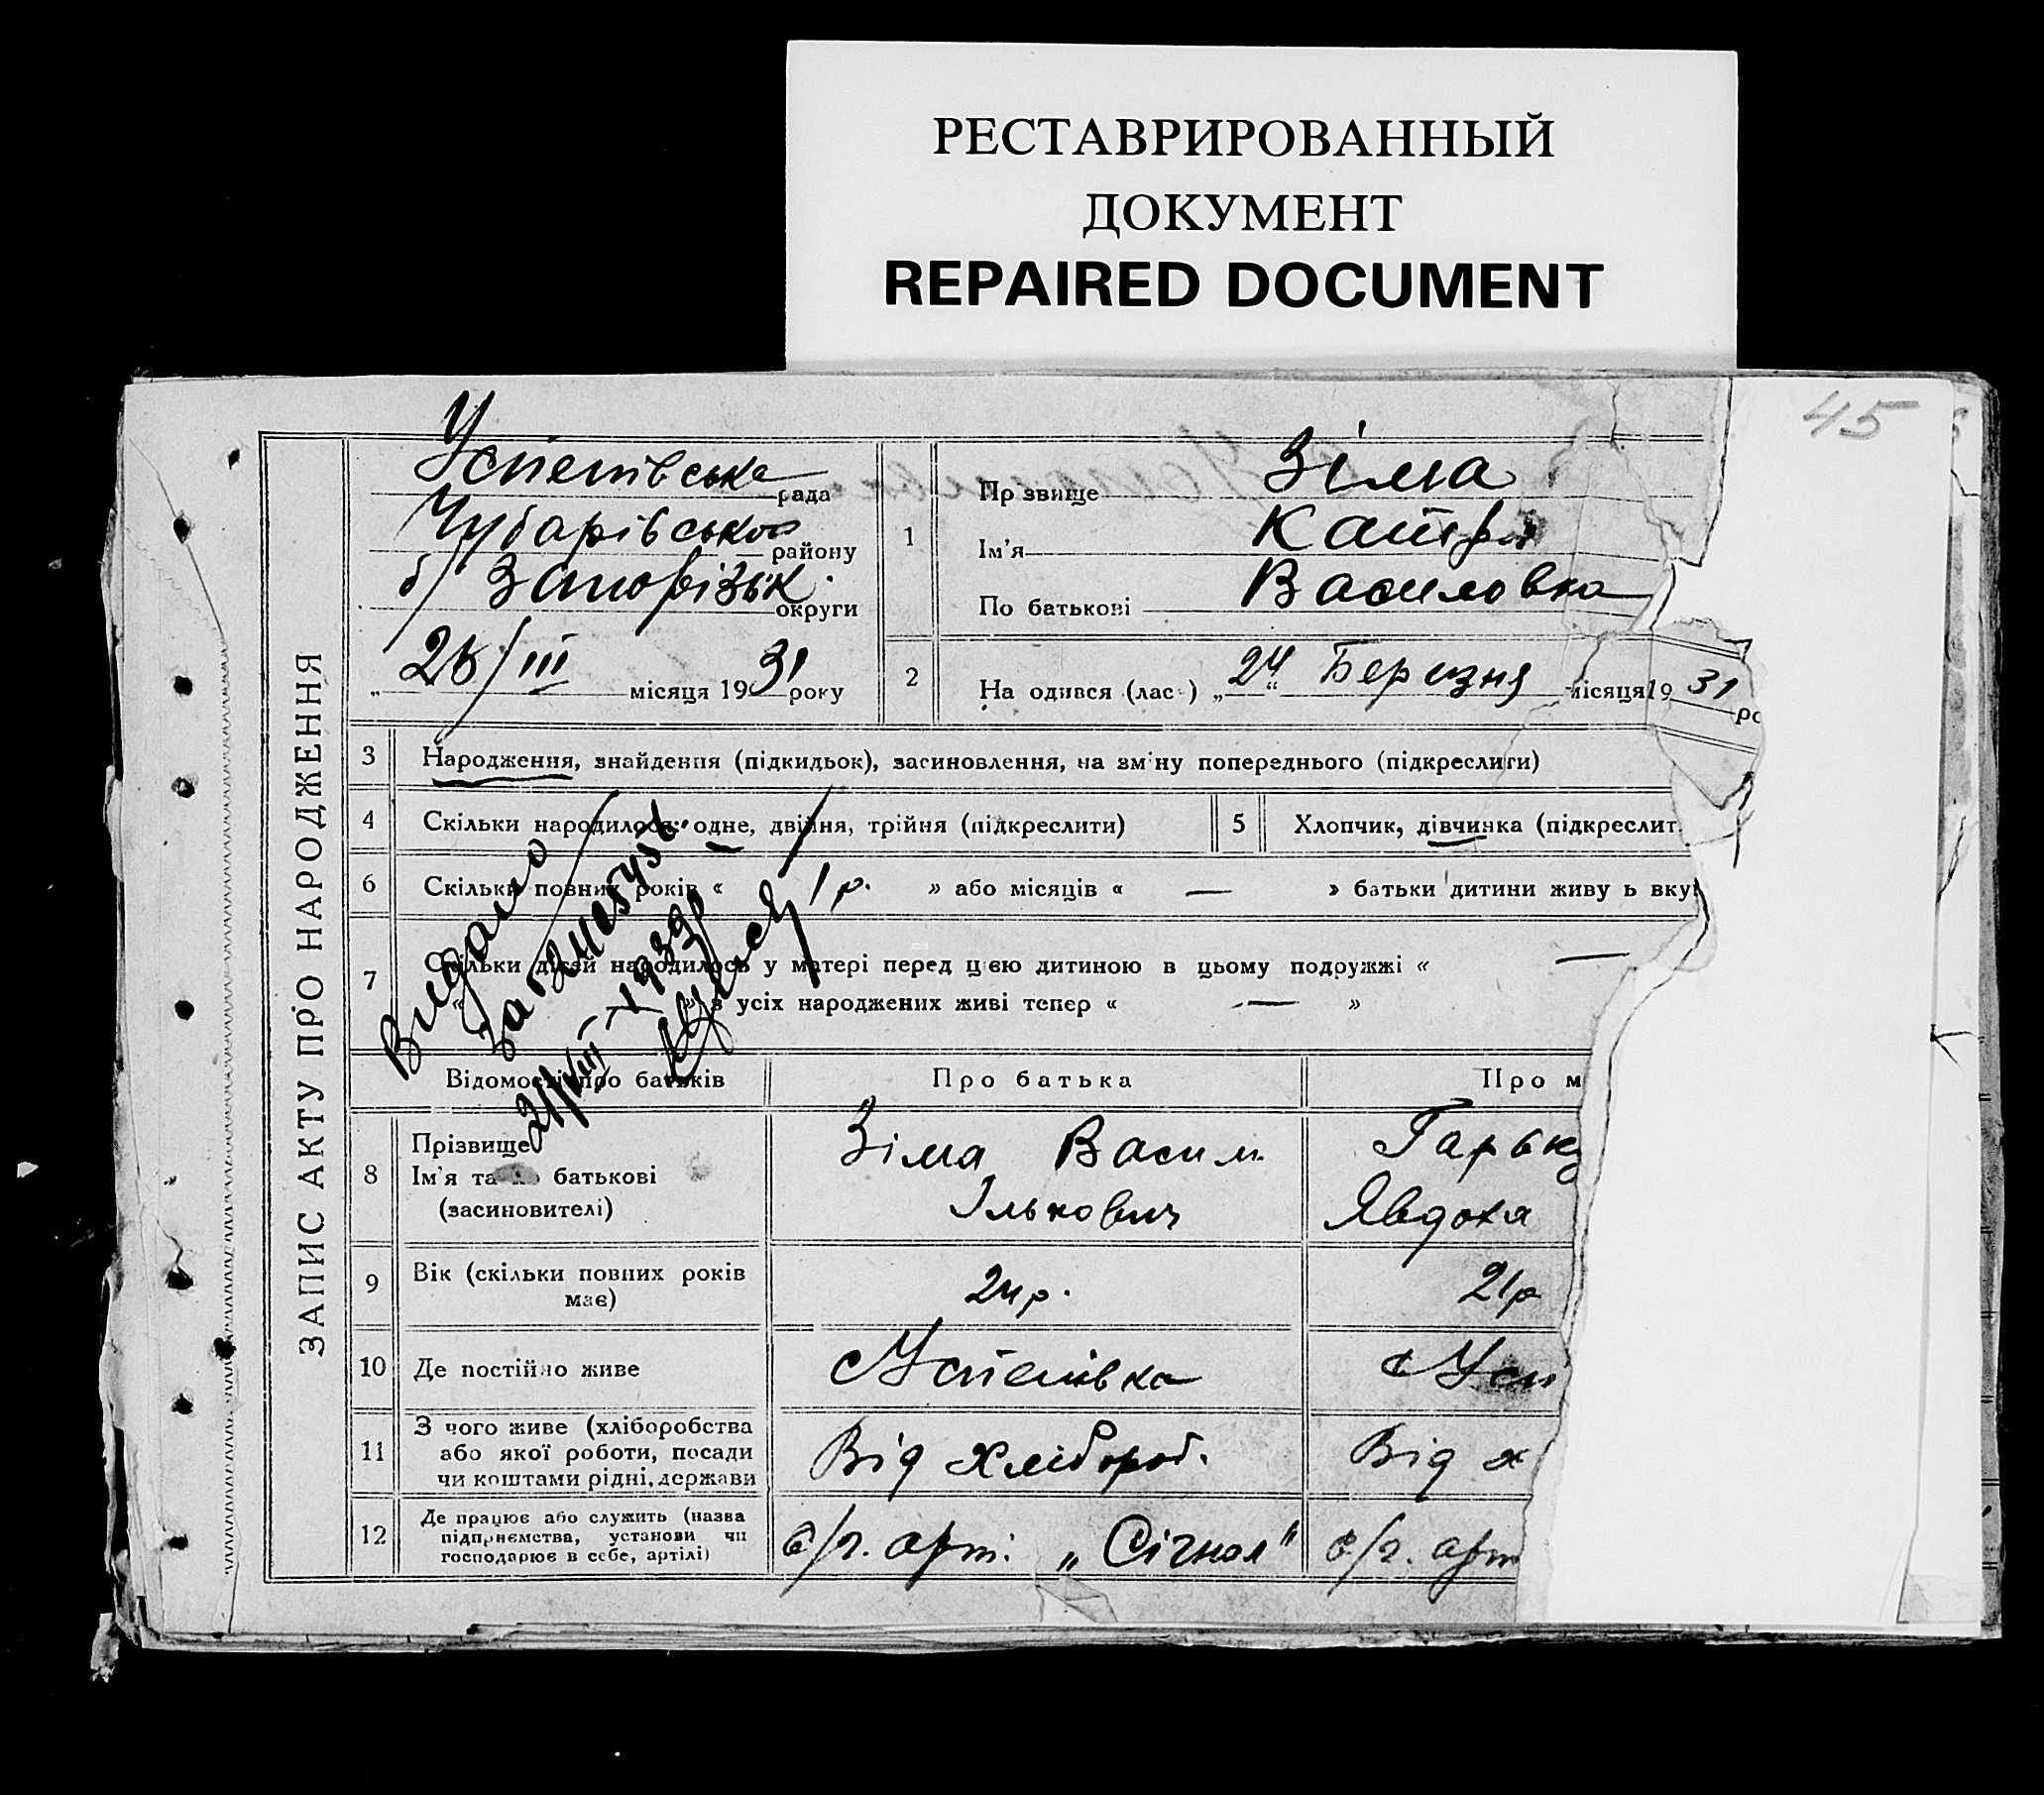 РЕСТАВРИРОВАННЫЙ
ДОКУМЕНТ
REPAIRED DOCUMENT
45
ЗАПИС АКТУ ПРО НАРОДЖЕННЯ
Успенівська рада
Чубарівсько району
б/ Запорізьк. округи
„ 26/III місяця 1931 року
1
Прізвище Зіма
Ім'я Катря
По батькові Василовна
2 На одився (лас ) „24“ Березня місяця 1931 ро
3 Народження, знайдення (підкидьок), засиновлення, на зміну попереднього (підкреслити)
4 Скільки народилося: одне, двійня, трійня (підкреслити)
5 Хлопчик, дівчинка (підкреслит
6 Скільки повних років « 1 р. » або місяців « — » батьки дитини живу ь вку
7 Скільки дітей народилось у матері перед цією дитиною в цьому подружжі « —
« » з усіх народжених живі тепер « — »
Видано
21/VIII-1939р
Відомості про батьків
Про батька
Про м
8 Прізвище
Ім'я та по батькові
(засиновителі)
Зіма Васил
Ількович
Гарьку
Явдоха
9 Вік (скільки повних років
має)
24 р.
21 р
10 Де постійно живе
с Успенівка
с Усп
11 З чого живе (хліборобства
або якої роботи, посади
чи коштами рідні, держави
Від хлібороб.
Від х
12 Де працює або служить (назва
підприємства, установи чи
господарює в себе, артілі)
с/г. арт. „Сігнал“
с/г. арт